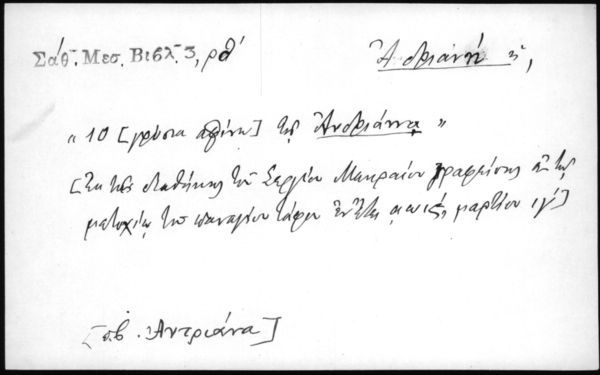 Σάθ. Μεσ. Βιβλ. 3, ρθ' Ἀδριανή ἡ,
« 10 [γρόσια ἀφίνω] τῆς Ἀνδριάννας »
[Ἐκ τῆς διαθήκης τοῦ Σεργίου Μακραίου γραφείσης ἐν τῷ
μετοχίῳ τοῦ παναγίου τάφου ἐν ἔτει αωιζ, μαρτίου ιγ']
[πβ. Ἀντριάνα]